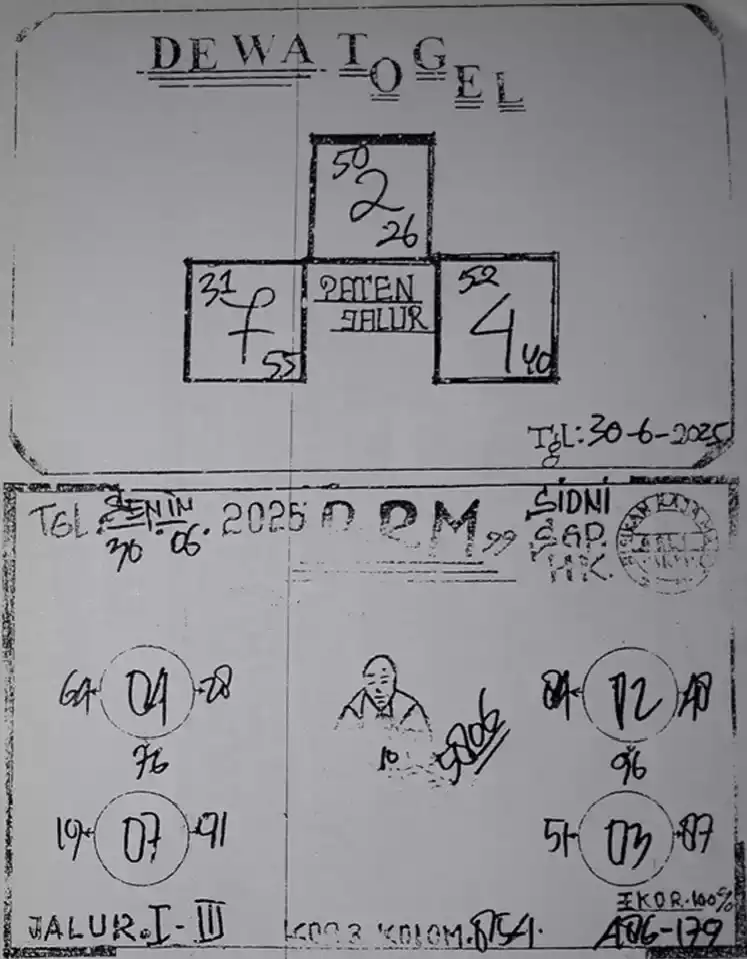 DEWA TOGEL
50
2
26
31
7
55
PATEN
JALUR
52
4
40
Tgl: 30-6-2025
TGL. SENIN 2025
30 . 06.
P.P.M,,
SIDNI
SGP.
HK.
64 04 28
76
19 07 91
10
5806
84 12 48
96
51 03 87
JALUR. I - III
KOLOM. 854.
EKOR. 100%
406-179